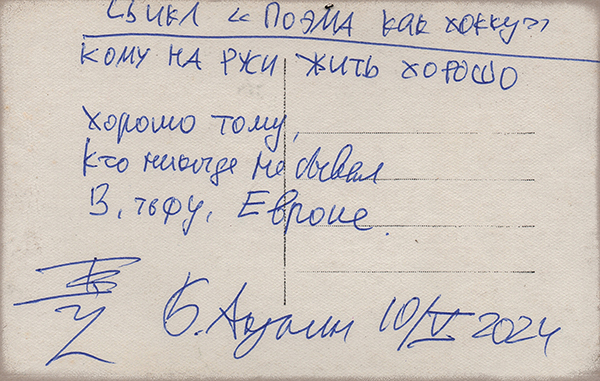 Цикл « Поэма как хокку»
КОМУ НА РУСИ ЖИТЬ ХОРОШО
Хорошо тому,
Кто никогда не бывал
В, тьфу, Европе.
Б. Акунин 10/V 2024